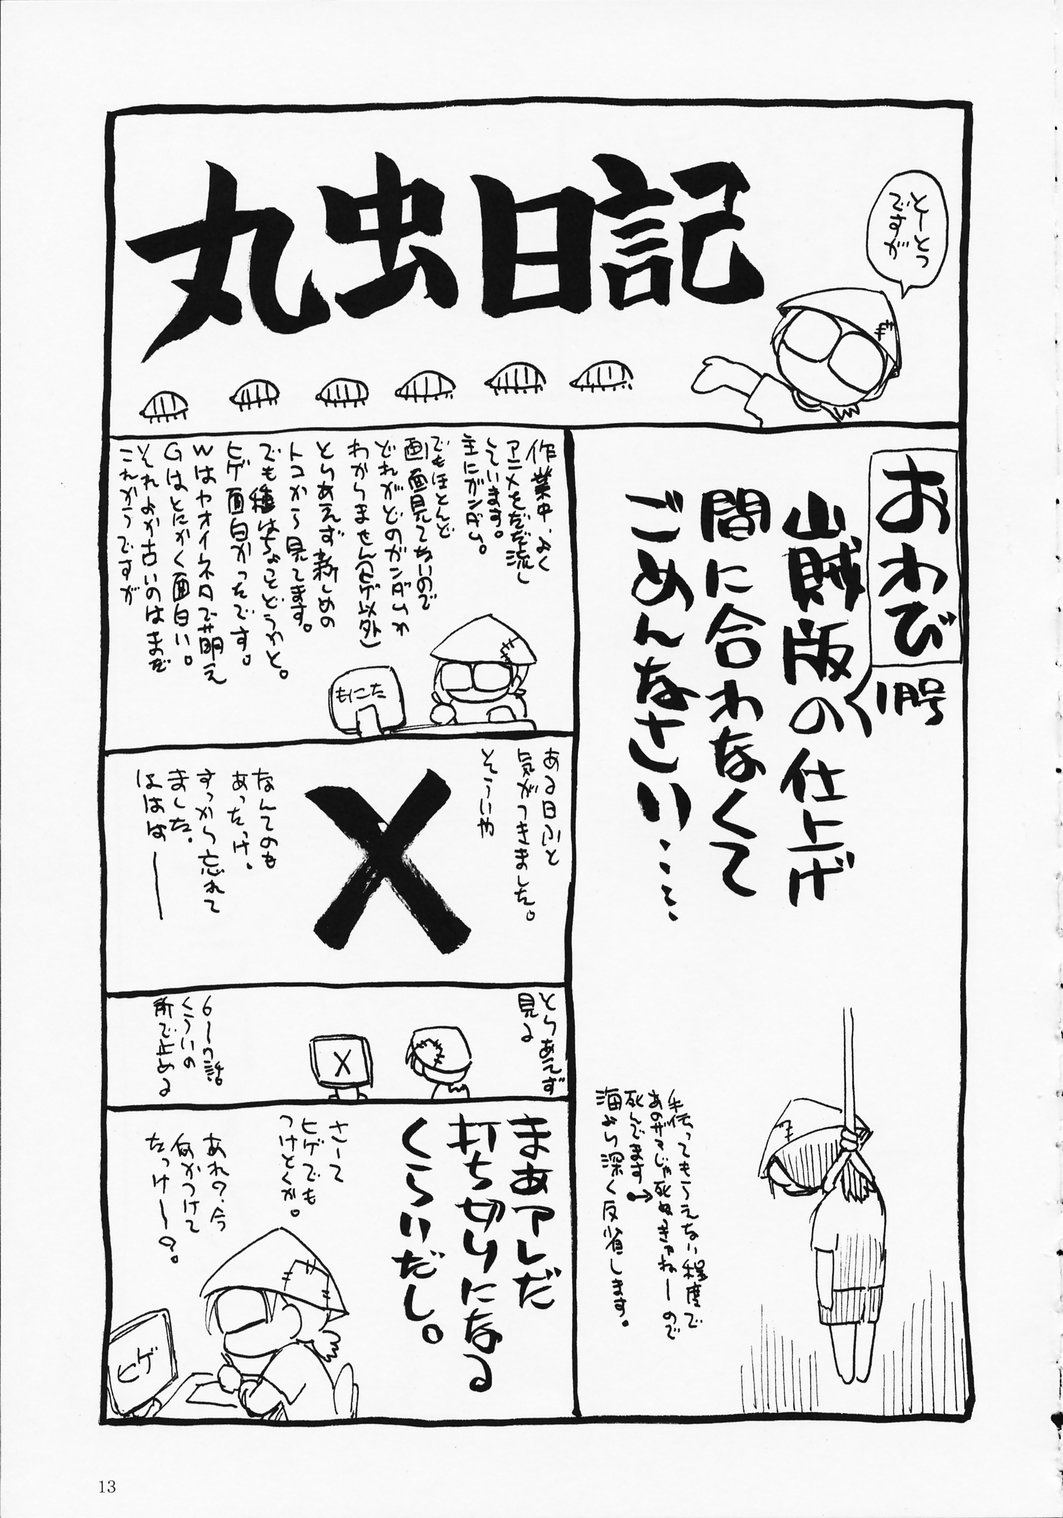 丸虫日記
とーとつ
ですが
おわび
1月号
山賊版の仕上げ
間に合わなくて
ごめんなさい……
手伝ってもらえない程度で
死んでます
海より深く反省します。
作業中、よく
アニメをだだ流し
しています。
主にガンダム。
でもほとんど
画面見てないので
どれがどのガンダムか
わかりません(ヒゲ以外)
とりあえず新しめの
トコから見てます。
でも種はちょっとどうかと。
ヒゲ面白かったです。
Wはヤオイネタで萌え
Gはとにかく面白い。
それより古いのはまだ
これからですが
もにた
ある日ふと
気がつきました。
そういや
X
なんてのも
あったっけ。
すっかり忘れて
ました。
ははは――
とりあえず
見る
X
6〜7話
くらいの
所で止める
まあアレだ
打ち切りになる
くらいだし。
さーて
ヒゲでも
つけとくか。
あれ?今
何かつけて
たっけー?。
ヒゲ
13